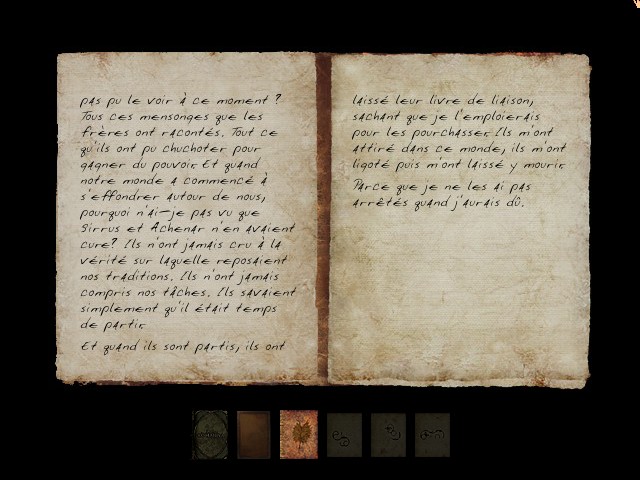 pas pu le voir à ce moment ?
Tous ces mensonges que les
frères ont racontés. Tout ce
qu'ils ont pu chuchoter pour
gagner du pouvoir. Et quand
notre monde a commencé à
s'effondrer autour de nous,
pourquoi n'ai-je pas vu que
Sirrus et Achenar n'en avaient
cure? Ils n'ont jamais cru à la
vérité sur laquelle reposaient
nos traditions. Ils n'ont jamais
compris nos tâches. Ils savaient
simplement qu'il était temps
de partir.
Et quand ils sont partis, ils ont
laissé leur livre de liaison,
sachant que je l'emploierais
pour les pourchasser. Ils m'ont
attiré dans ce monde, ils m'ont
ligoté puis m'ont laissé y mourir.
Parce que je ne les ai pas
arrêtés quand j'aurais dû.